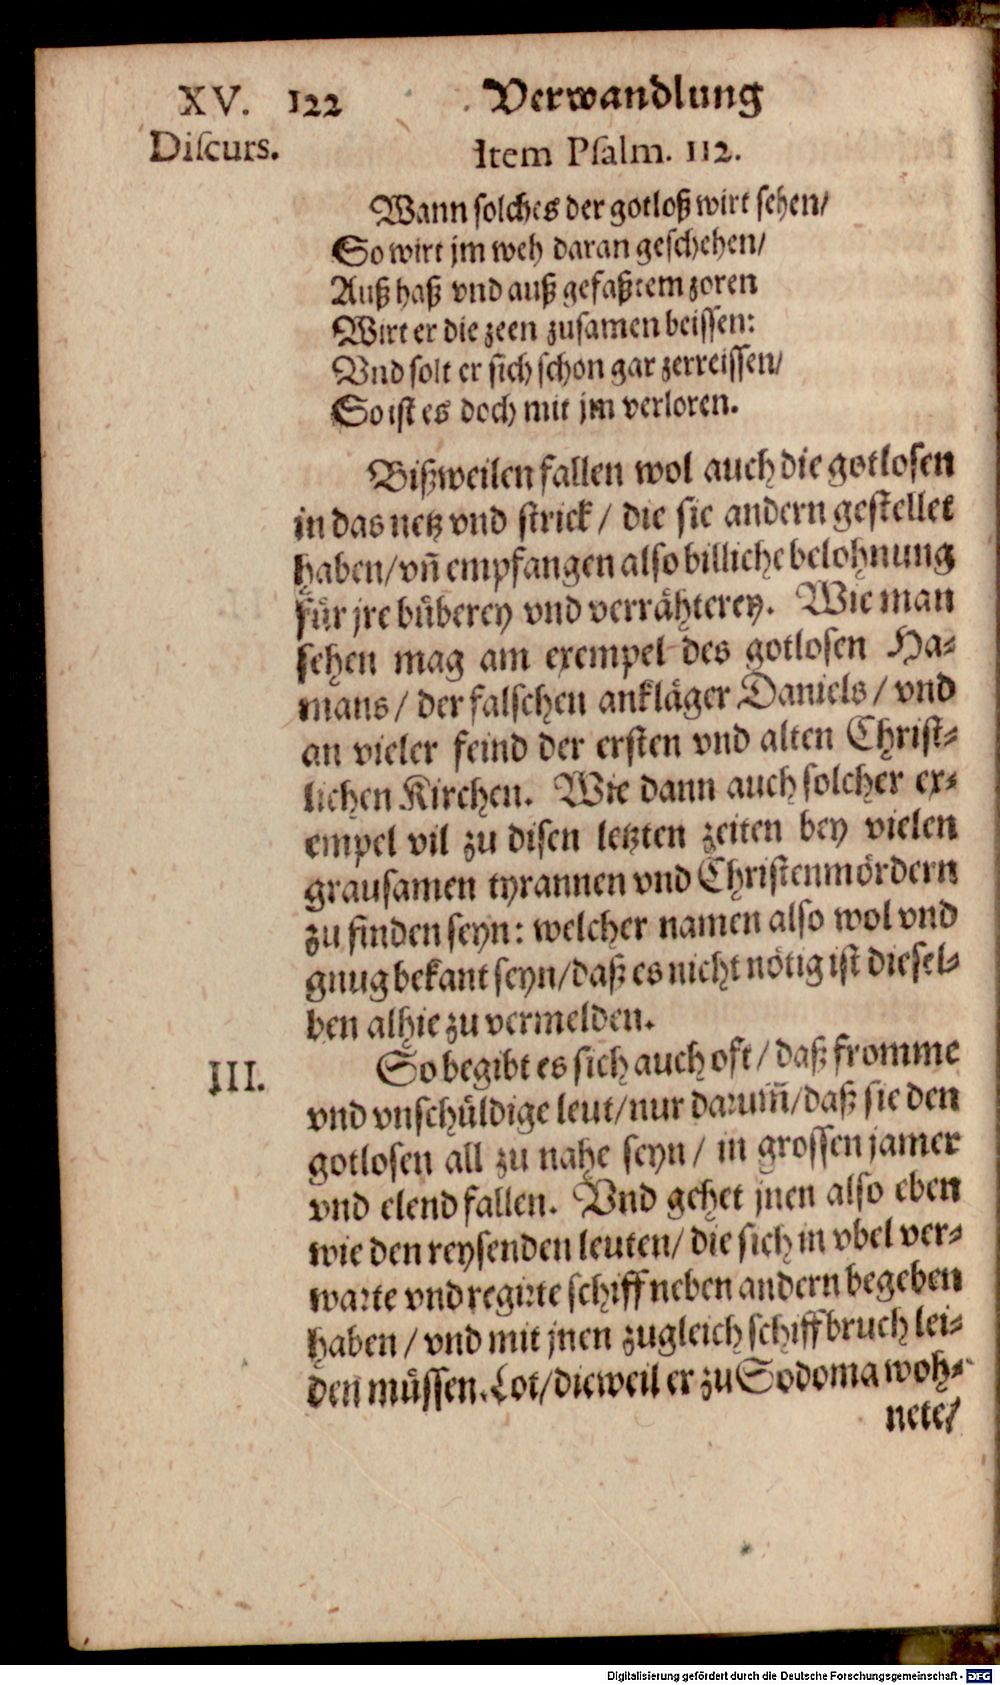 XV. 122 Verwandlung
Discurs. Item Psalm. 112.
Wann solches der gotloß wirt sehen/
So wirt jm weh daran geschehen/
Auß haß vnd auß gefaßtem zoren
Wirt er die zeen zusamen beissen:
Vnd solt er sich schon gar zerreissen/
So ist es doch mit jm verloren.
Bißweilen fallen wol auch die gotlosen
in das netz vnd strick / die sie andern gestellet
haben/vñ empfangen also billiche belohnung
für jre büberey vnd verrähterey. Wie man
sehen mag am exempel des gotlosen Ha-
mans / der falschen ankläger Daniels / vnd
an vieler feind der ersten vnd alten Christ-
lichen Kirchen. Wie dann auch solcher ex-
empel vil zu disen letzten zeiten bey vielen
grausamen tyrannen vnd Christenmördern
zu finden seyn: welcher namen also wol vnd
gnug bekant seyn/daß es nicht nötig ist diesel-
ben alhie zu vermelden.
III. So begibt es sich auch oft / daß fromme
vnd vnschüldige leut/nur darum̃/daß sie den
gotlosen all zu nahe seyn / in grossen jamer
vnd elend fallen. Vnd gehet jnen also eben
wie den reysenden leuten/ die sich in vbel ver-
warte vnd regirte schiff neben andern begeben
haben / vnd mit jnen zugleich schiffbruch lei-
den müssen. Lot/dieweil er zu Sodoma woh-
nete/
Digitalisierung gefördert durch die Deutsche Forschungsgemeinschaft - DFG